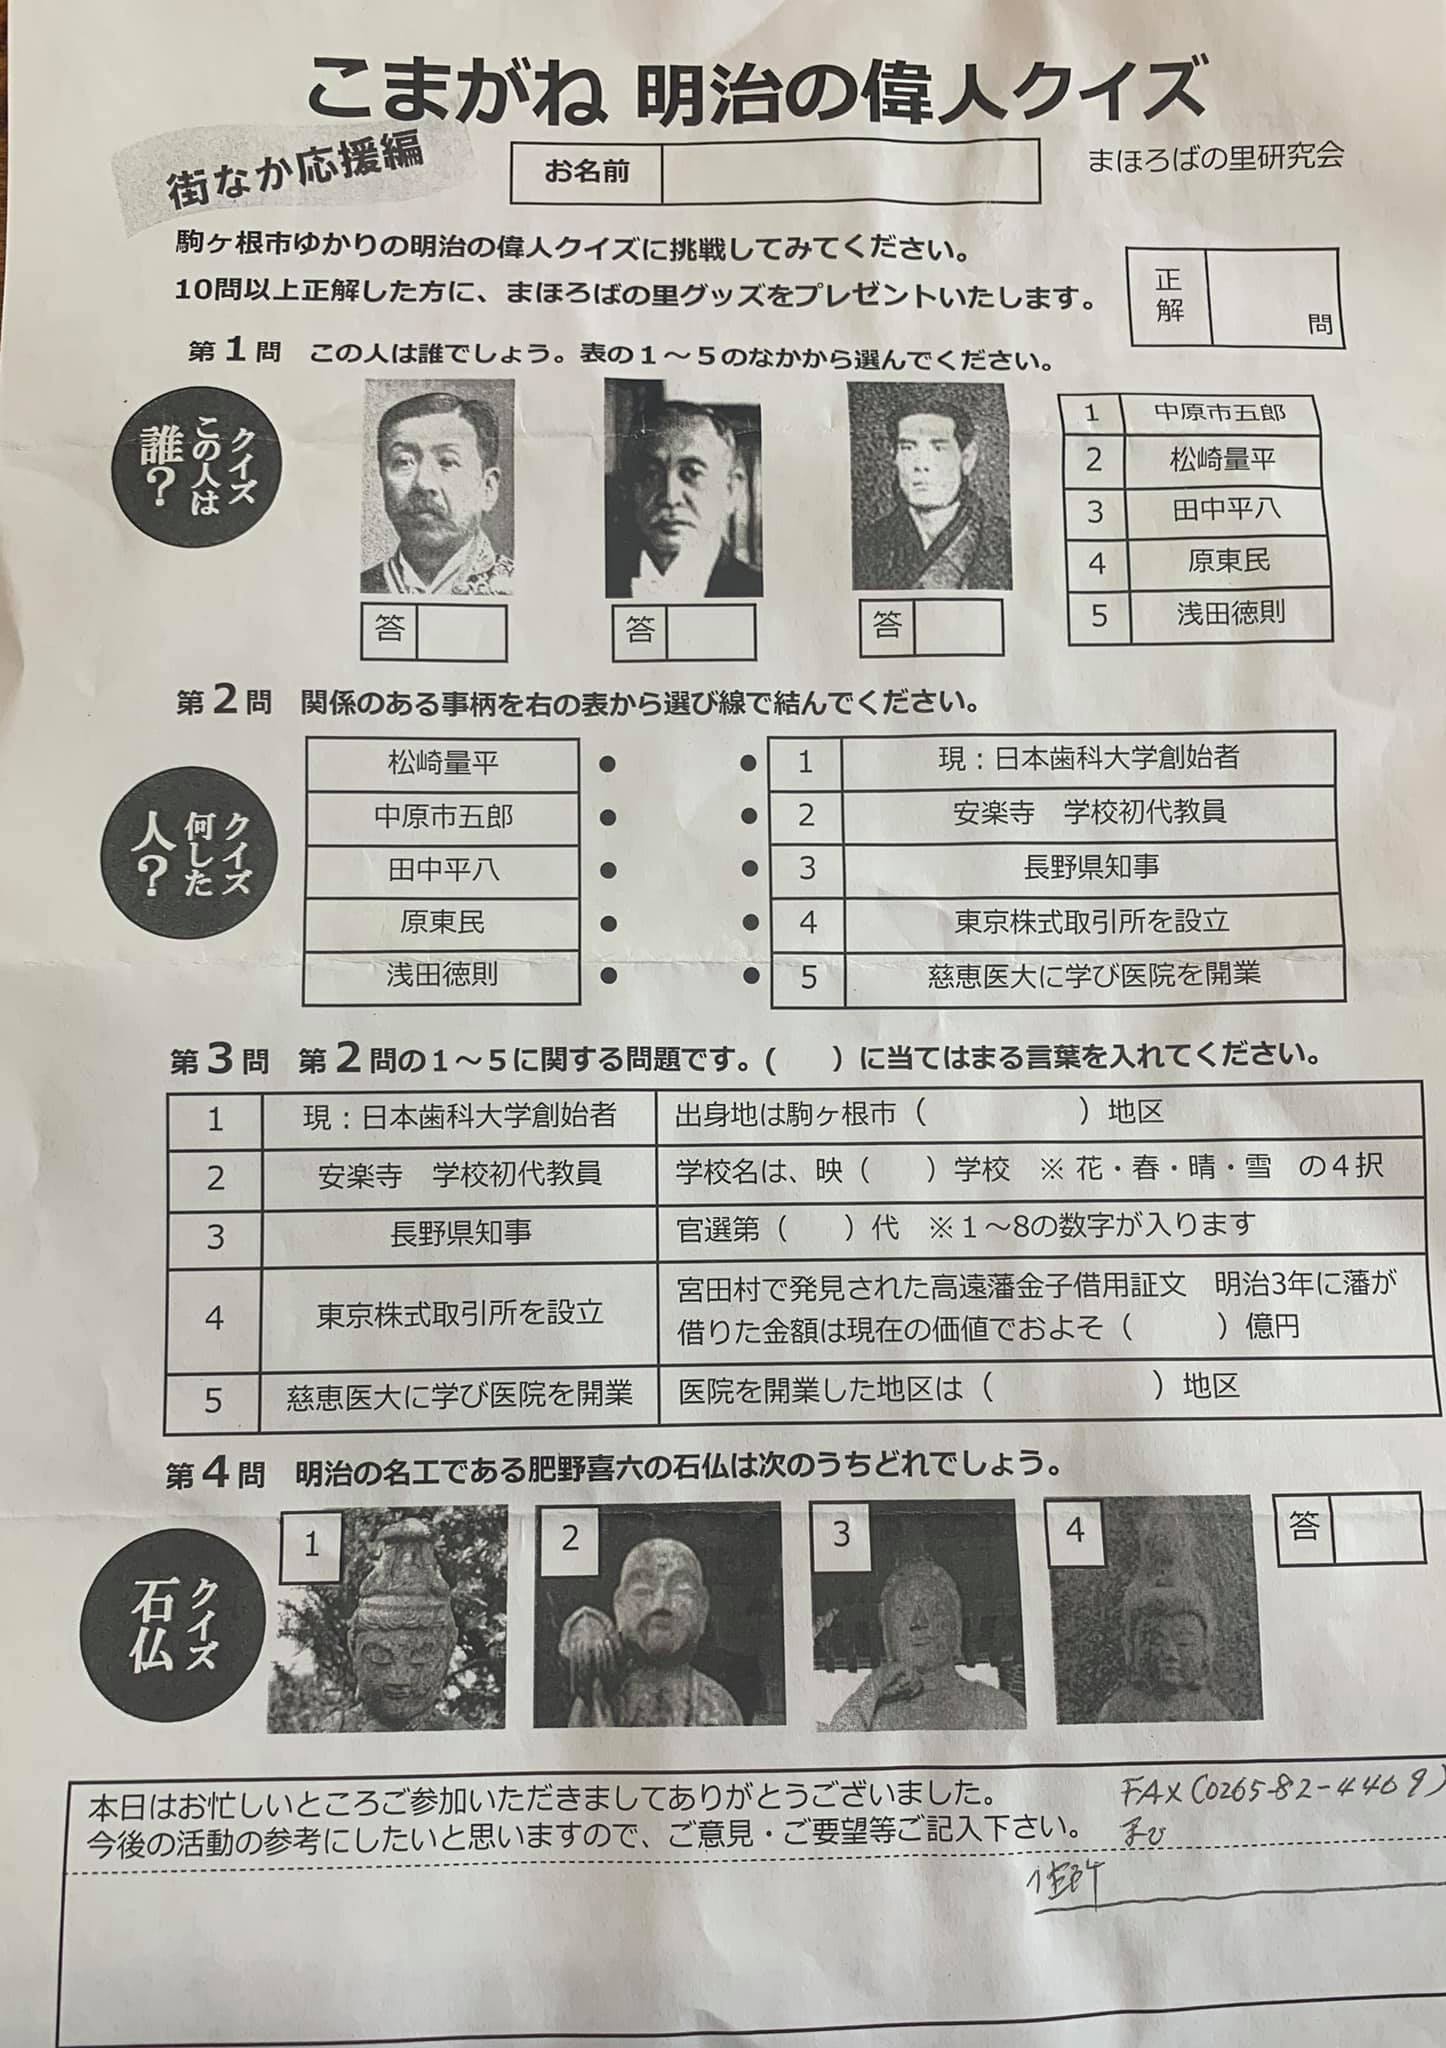 こまがね 明治の偉人クイズ
街なか応援編
お名前
まほろばの里研究会
駒ヶ根市ゆかりの明治の偉人クイズに挑戦してみてください。
10問以上正解した方に、まほろばの里グッズをプレゼントいたします。
正解
問
第1問 この人は誰でしょう。表の1~5のなかから選んでください。
クイズ
この人は
誰?
答
答
答
1 中原市五郎
2 松崎量平
3 田中平八
4 原東民
5 浅田徳則
第2問 関係のある事柄を右の表から選び線で結んでください。
クイズ
何した
人?
松崎量平 ● ● 1 現:日本歯科大学創始者
中原市五郎 ● ● 2 安楽寺 学校初代教員
田中平八 ● ● 3 長野県知事
原東民 ● ● 4 東京株式取引所を設立
浅田徳則 ● ● 5 慈恵医大に学び医院を開業
第3問 第2問の1~5に関する問題です。( )に当てはまる言葉を入れてください。
1 現:日本歯科大学創始者 出身地は駒ヶ根市( )地区
2 安楽寺 学校初代教員 学校名は、映( )学校 ※ 花・春・晴・雪 の4択
3 長野県知事 官選第( )代 ※1~8の数字が入ります
4 東京株式取引所を設立 宮田村で発見された高遠藩金子借用証文 明治3年に藩が
借りた金額は現在の価値でおよそ( )億円
5 慈恵医大に学び医院を開業 医院を開業した地区は( )地区
第4問 明治の名工である肥野喜六の石仏は次のうちどれでしょう。
クイズ
石仏
1
2
3
4
答
本日はお忙しいところご参加いただきましてありがとうございました。
今後の活動の参考にしたいと思いますので、ご意見・ご要望等ご記入下さい。
FAX(0265-82-4409)
まで
住所